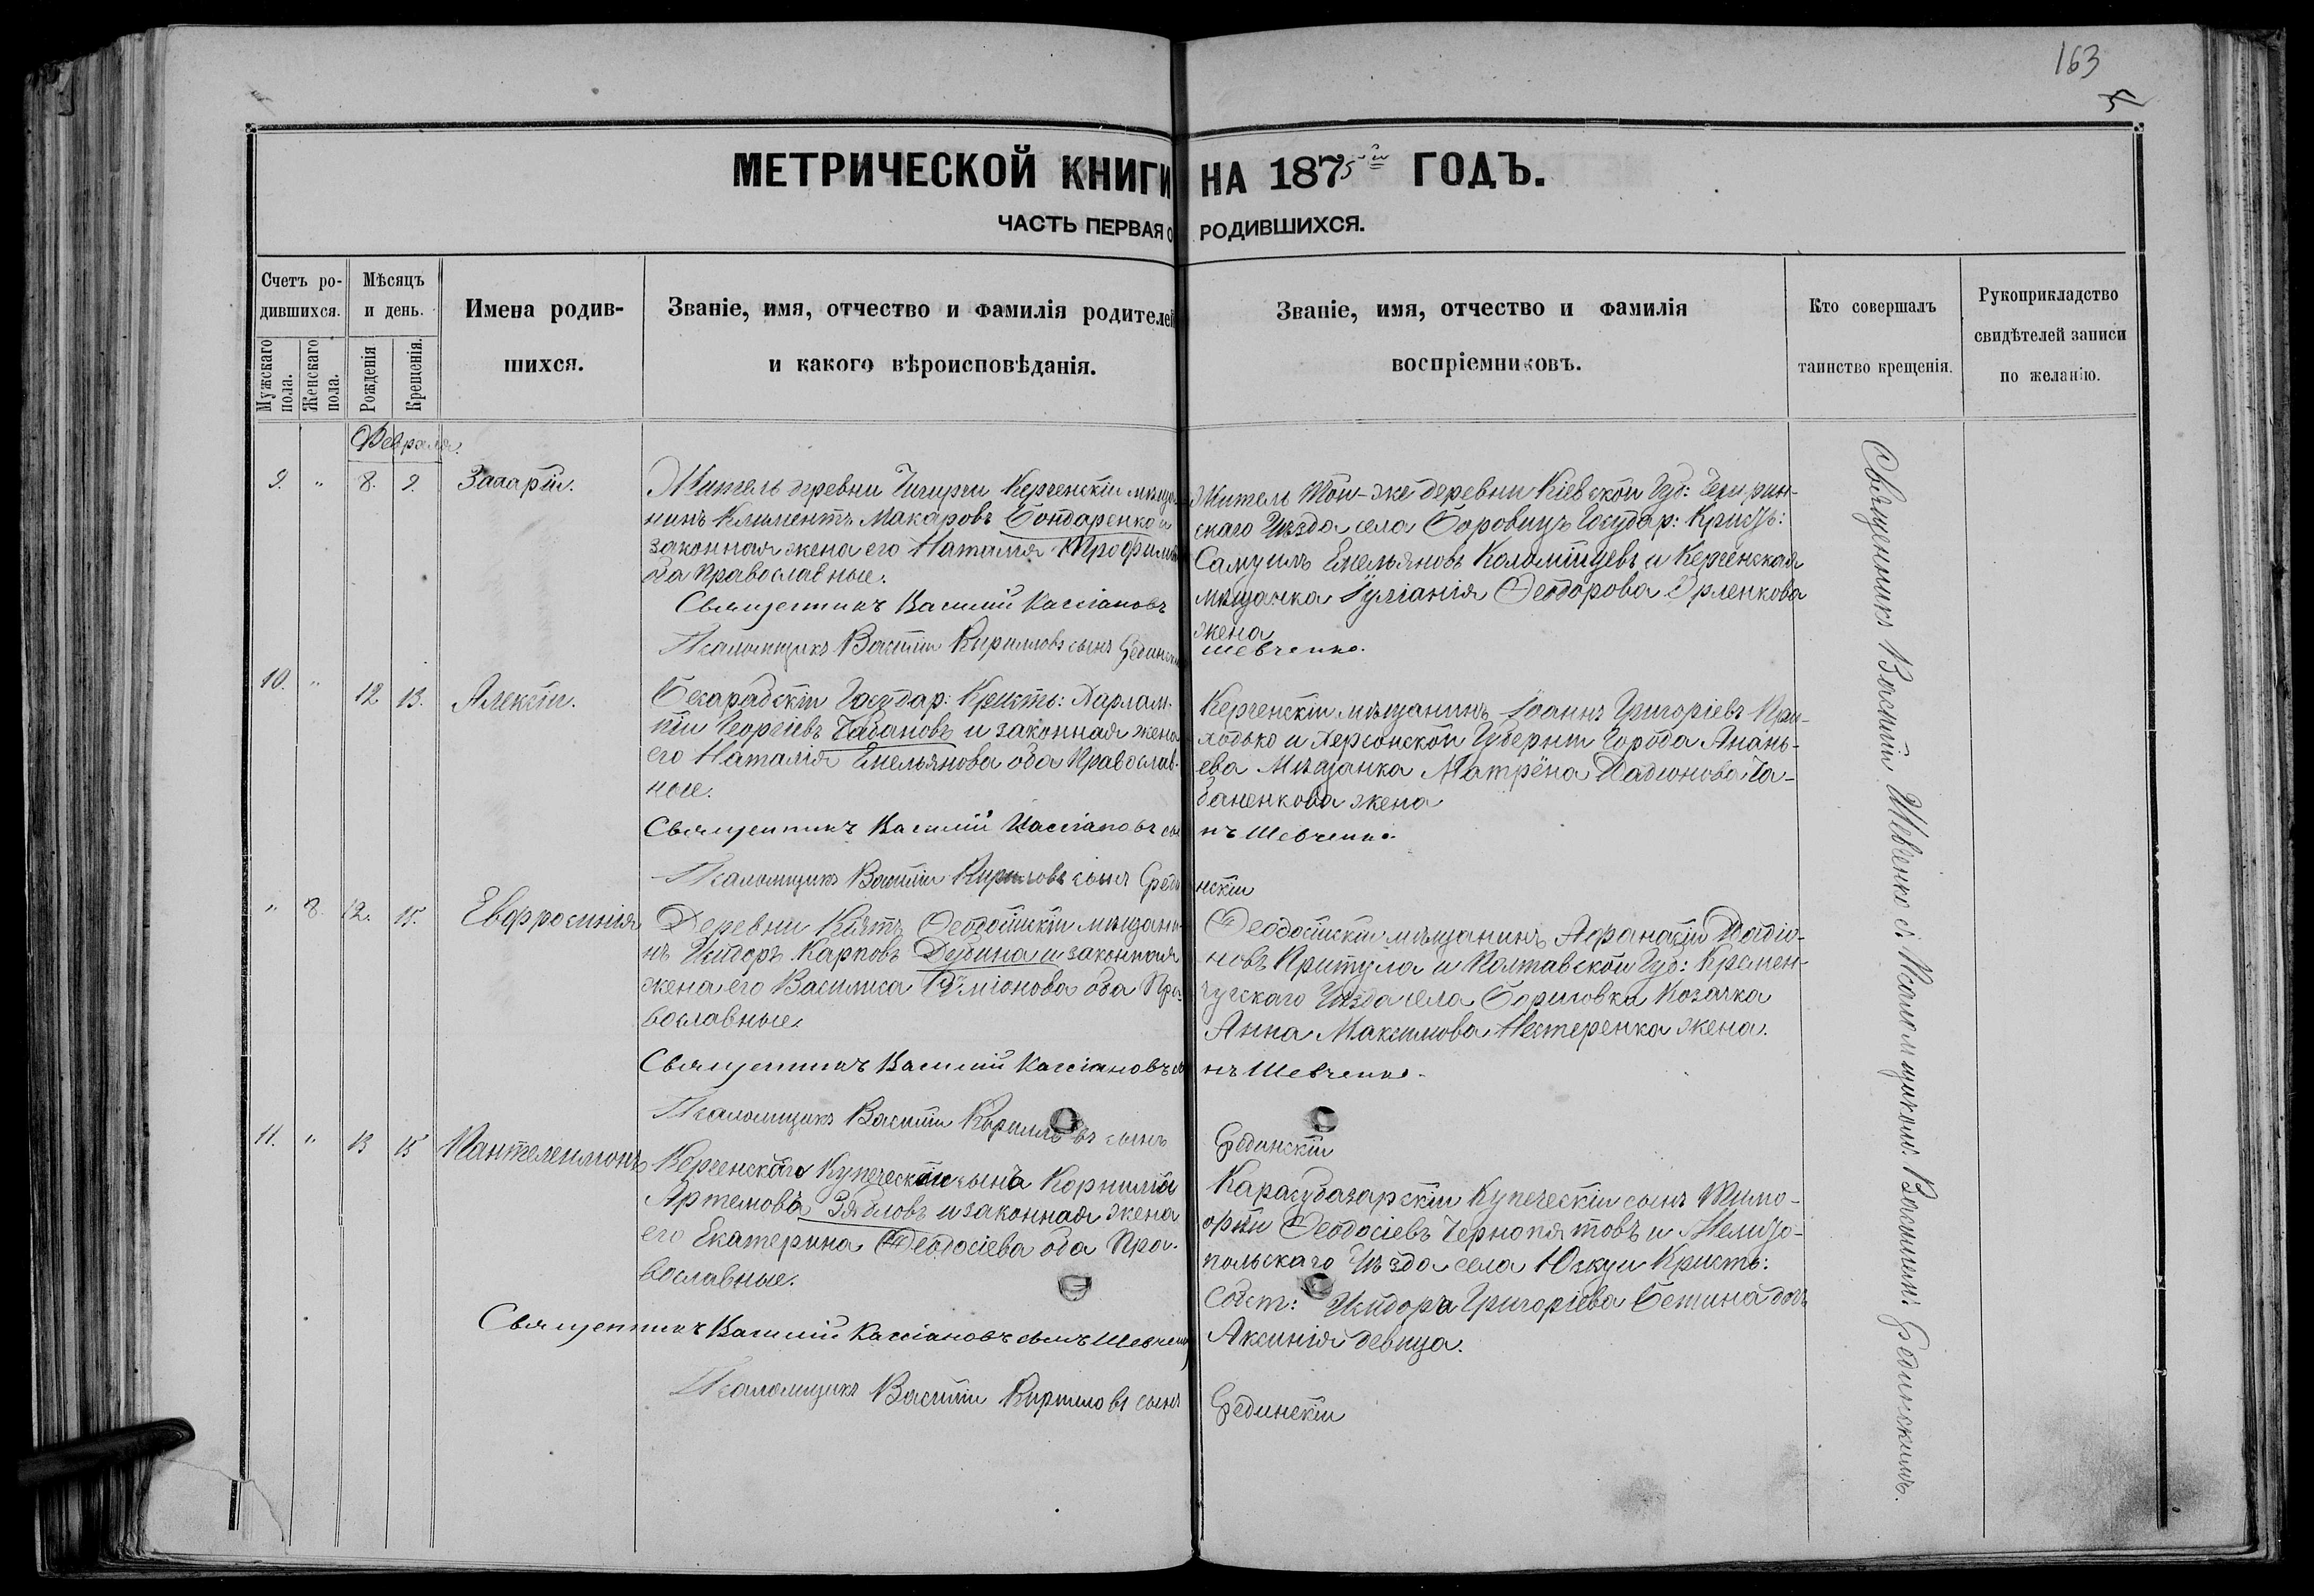 163
5
МЕТРИЧЕСКОЙ КНИГИ НА 1875й ГОДЪ.
ЧАСТЬ ПЕРВАЯ О РОДИВШИХСЯ.
Счетъ родившихся.
Мужскаго пола.
Женскаго пола.
Мѣсяцъ и день.
Рожденія
Крещенія.
Имена родив-
шихся.
Званіе, имя, отчество и фамилія родителей
и какого вѣроисповѣданія.
Званіе, имя, отчество и фамилія
воспріемниковъ.
Кто совершалъ
таинство крещенія.
Рукоприкладство
свидѣтелей записи
по желанію.
Февраля.
9. " 8. 9. Захарій.
Житель деревни Чигирги Керченскій мѣща-
нинъ Климентъ Макаровъ Бондаренко и
законная жена его Наталія
оба Православные.
Священникъ Василій Кассіановъ
Псаломщикъ Василій Кирилловъ сынъ
Житель той-же деревни Кіевской Губ: Чегирин-
скаго Уѣзда села Боровицъ Государ: Крест:
Самуилъ Емельяновъ Коломійцевъ и Керченская
мѣщанка Іуліанія Ѳеодорова Орленкова
жена
Шевченко.
10. " 12 13. Алексій.
Бесарабскій Государ: Крестъ: Харлам-
пій Георгіевъ Чабановъ и законная жена
его Наталія Емельянова оба Православ-
ные.
Священникъ Василій Кассіановъ сы
нъ Шевченко.
Псаломщикъ Василій Кирилловъ сынъ Среди
нскій
Керченскій мѣщанинъ Іоаннъ Григоріевъ При-
ходько и Херсонской Губерніи Города Анань-
ева Мѣщанка Матрёна Радіонова Ча-
баненкова жена
" 8. 12. 15. Евфросинія
Деревни Кіятъ Ѳеодосійскій мѣщани-
нъ Исидоръ Карповъ Дерина и законная
жена его Василиса оба Пра-
вославные.
Священникъ Василій Кассіановъ сы
нъ Шевченко.
Псаломщикъ Василій Кирилловъ сынъ
Срединскій
Ѳеодосійскій мѣщанинъ Афанасій Радіо-
новъ Притула и Полтавской Губ: Кремен-
чугскаго Уѣзда села Борисовки Козачка
Анна Максимова Нестеренка жена.
11. " 13 15 Пантелеимонъ
Керченскаго Купеческій сына Корнилій
Артемова Зябловъ и законная жена
его Екатерина Ѳеодосіева оба Пра-
вославные.
Священникъ Василій Кассіановъ сынъ Шевченко
Псаломщикъ Василій Кирилловъ сынъ
Срединскій
Карасубазарскій Купеческій сынъ Тимо-
фей Ѳеодосіевъ Чернопятовъ и Мелито-
польскаго Уѣзда села Юзкуи Крестъ:
Собст: Исидора Григоріева Бетина дочь
Аксинія девица.
Священникъ Василій Шевченко съ Псаломщикомъ Василіемъ Срединскимъ.